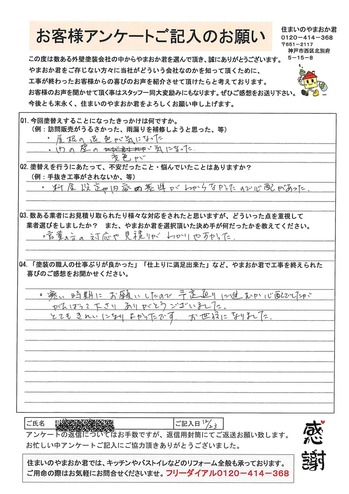 お客様アンケートご記入のお願い
住まいのやまおか君
0120-414-368
〒651-2117
神戸市西区北別府
5-15-8
この度は数ある外壁塗装会社の中からやまおか君を選んで頂き、誠にありがとうございます。
やまおか君をご存じない方々に当社がどういう会社なのかを知って頂くために、
工事が終わったお客様からの喜びのお声を紹介させて頂けたらと考えております。
お客様のお声を聞かせて頂く事はスタッフ一同大変励みにもなります。ぜひご感想をお送り下さい。
今後とも末永く、住まいのやまおか君をよろしくお願い申し上げます。
Q1. 今回塗替えすることになったきっかけは何ですか。
(例：訪問販売がうるさかった、雨漏りを補修しようと思った、等)
・屋根の退色が気になった
・内の壁の が気になった
Q2. 塗替えを行うにあたって、不安だったこと・悩んでいたことはありますか？
(例：手抜き工事がされないか、等)
・料 設定や内容の基準がわからなかったので心配があった。
Q3. 数ある業者にお見積り取られたり様々な対応をされたと思いますが、どういった点を重視して
業者選びをしましたか？ また、やまおか君を選択頂いた決め手が何だったかを教えてください。
・営業の方の対応や見積りがわかりやすかった。
Q4.「塗装の職人の仕事ぶりが良かった」「仕上りに満足出来た」など、やまおか君で工事を終えられた
喜びのご感想をお聞かせください。
・寒い時期にお願いしたので予定通りに進むか心配でしたが
がんばって下さりありがとうございました。
とてもきれいになりよかったです お世話になりました。
ご氏名
ご記入日
感謝
アンケートの返信についてはお手数ですが、返信用封筒にてご返送お願い致します。
お忙しい中アンケートにご協力頂きありがとうございました。
住まいのやまおか君では、キッチンやバストイレなどのリフォーム全般も承っております。
ご用命の際はお気軽にお問合せください。フリーダイアル0120-414-368